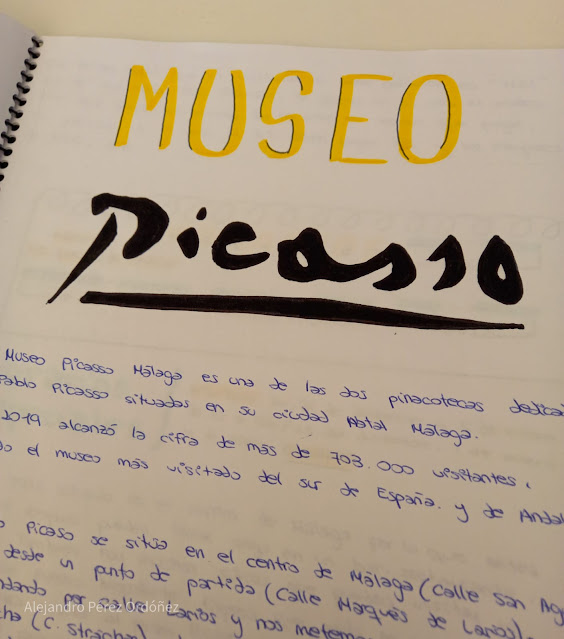 MUSEO
Picasso
Museo Picasso Málaga es una de las dos pinacotecas dedica
Pablo Picasso situadas en su ciudad natal Málaga.
2019 alcanzó la cifra de más de 703.000 visitantes,
do el museo más visitado del sur de España. y de Andal
o Picaso se situa en el centro de Málaga (calle San Ag
desde un punto de partida (Calle Marqués de Larios)
ndando por y nos metemo
cha (C. Strachan)
Alejandro Pérez Ordóñez